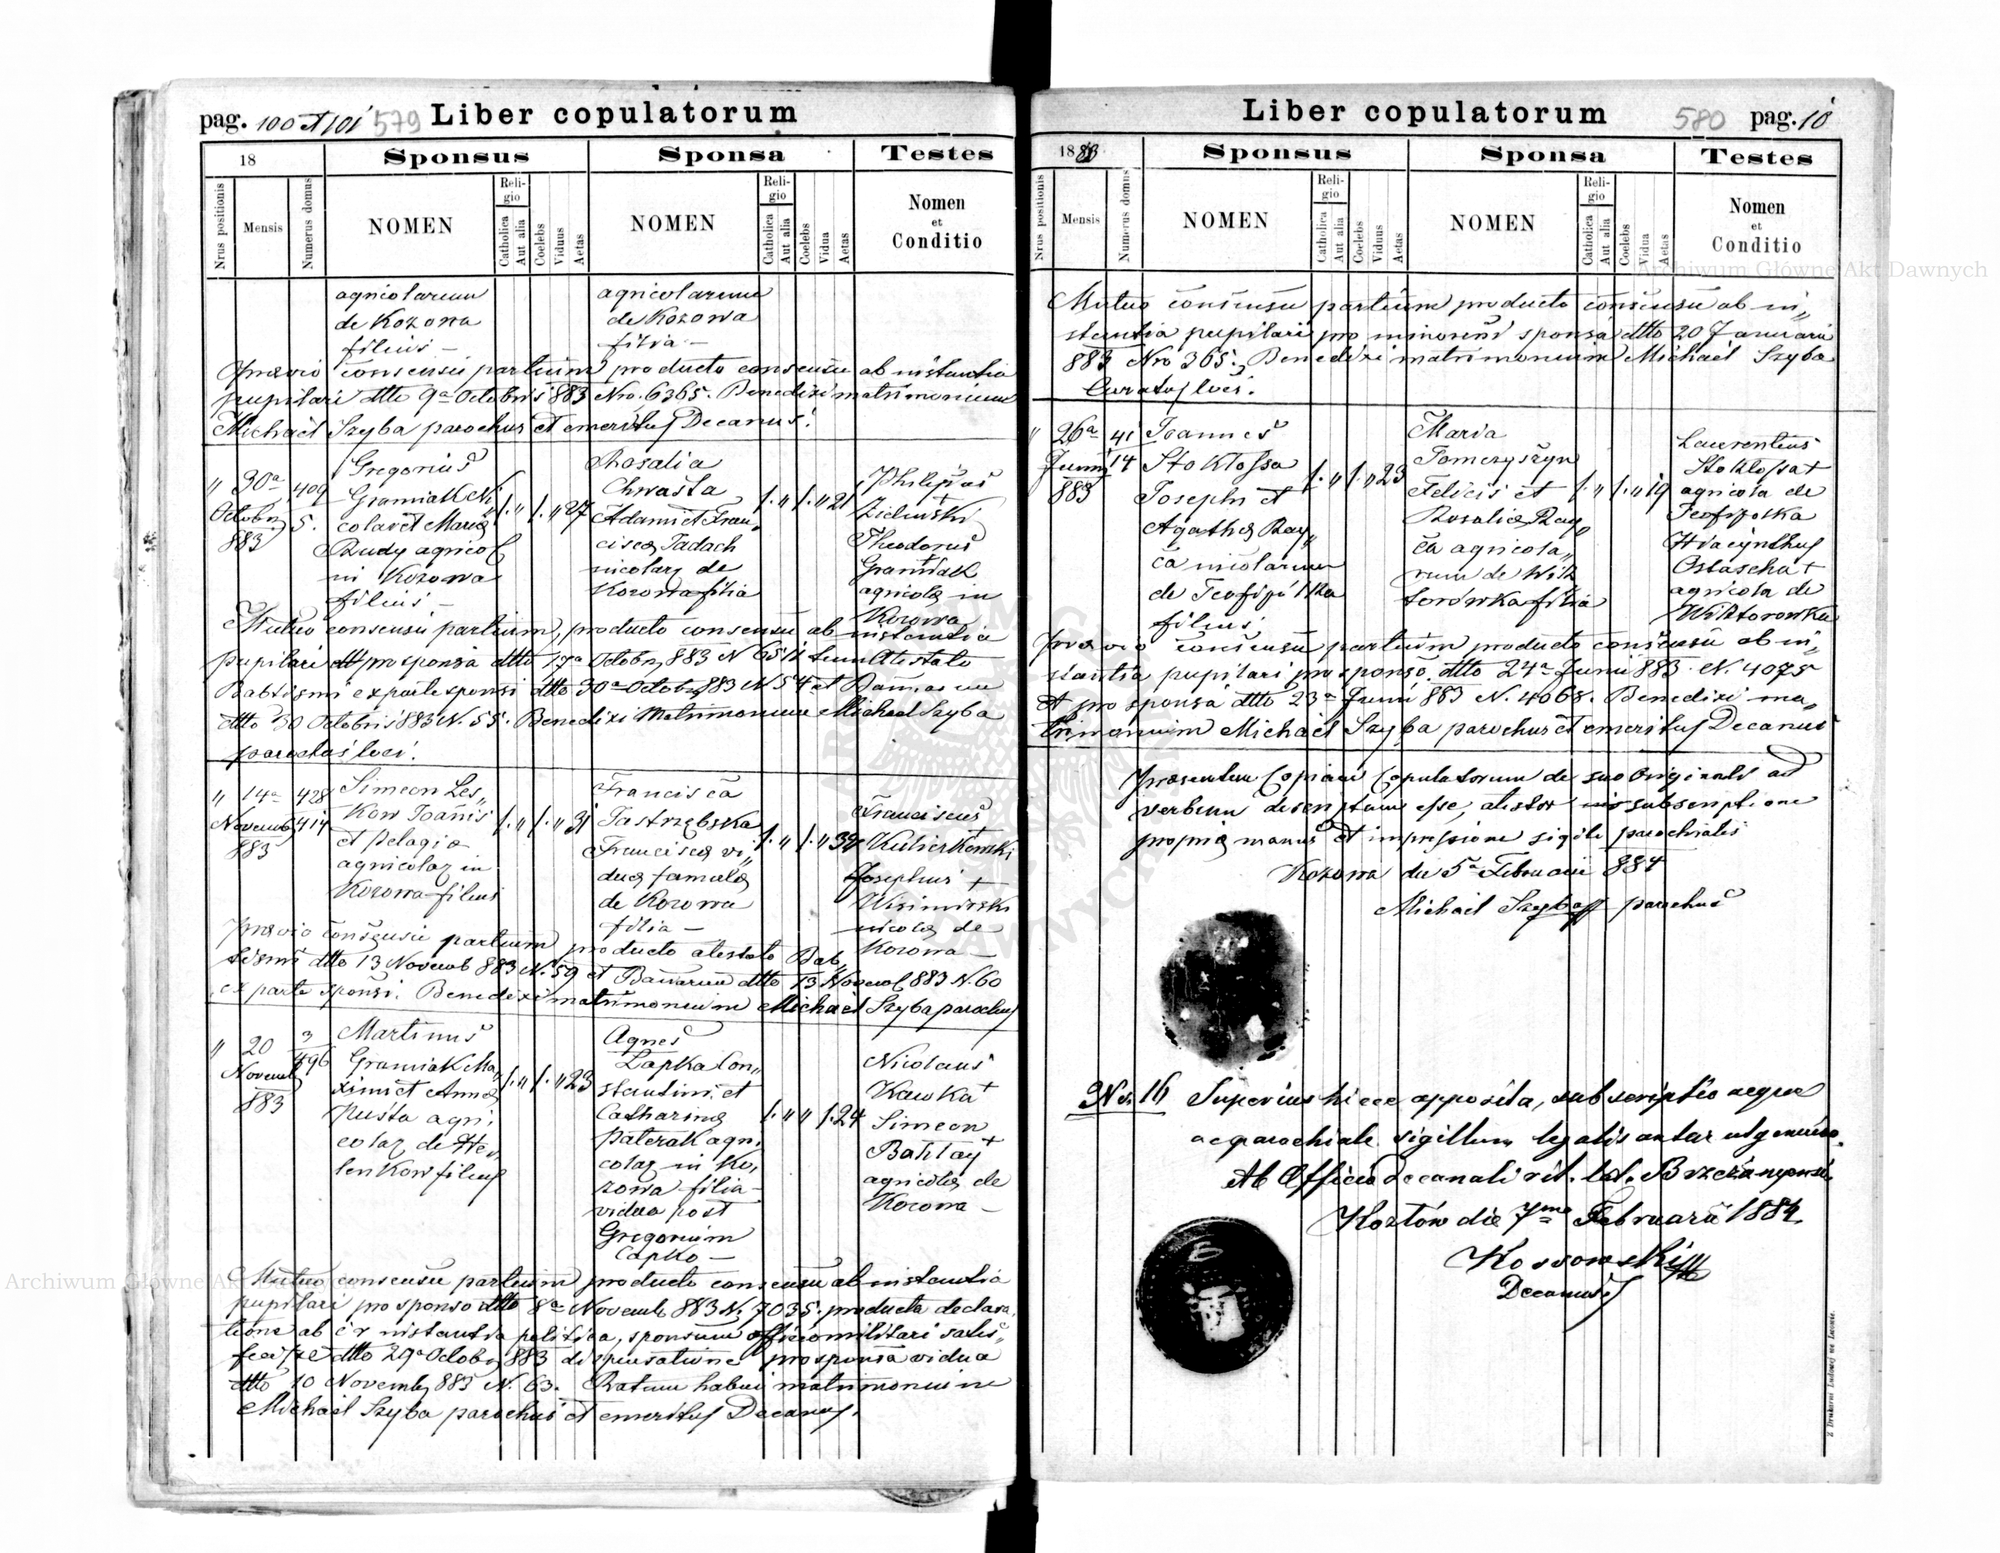 pag. 100 et 101 579 Liber copulatorum
18
Sponsus
Sponsa
Testes
Nrus positionis
Mensis
Numerus domus
NOMEN
Religio
Catholica
Aut alia
Coelebs
Viduus
Aetas
NOMEN
Religio
Catholica
Aut alia
Coelebs
Vidua
Aetas
Nomen
et
Conditio
agricolarum
de Kozowa
filius –
agricolarum
de Kozowa
filia –
Praevio consensu partium producto consensu ab instantia
pupilari dtto 9a Octobris 883 Nro. 6365. Benedixi matrimonium
Michael Szyba parochus et emeritus Decanus.
" 30a
Octobr
883
409
5.
Gregorius
Graniak Ni
colai et Maria
Rudy agricol
in Kozowa
filius. –
/. " /. " 27
Rosalia
Chwasta
Adami et Fran„
cisca Tadach
nicolarz de
Kozowa filia
/. " /. " 21
Philippus
+
Zielinski
Theodorus
+
Graniak
agricolae in
Kozowa
Mutuo consensu partium, producto consensu ab instantia
pupilari pro sponsa dtto 17a Octobr 883 N 6511 cum Atestato
Babtismi ex parte sponsi dtto 30a Octobr 883 N 54 et Bannorum
dtto 30 Octobris 883 N. 55. Benedixi Matrimonium Michael Szyba
parochus loci.
" 14a
Novemb
883
428
414
Simeon Les„
kow Joanis
et Pelagia
agricolarz in
Kozowa filius
/. " /. " 31
Francisca
Jastrzębska
Francisca vi„
dua famula
de Kozowa
filia –
/. " /. " 34
Franciscus
+
Kulierkowski
Josephus +
Wisimirski
nicolae de
Kozowa –
Praevio consensu partium producto atestato Bab„
tismi dtto 13 Novemb 883 N. 59 et Bannorum dtto 13 Novemb 883 N. 60
ex parte sponsi. Benedixi matrimonium Michael Szyba parochus
" 20
Novemb
883
3
496
Martinus
Graniak Ma„
ximi et Anna
Pusta agri„
colarz de He„
lenkow filius
/. " /. " 23
Agnes
Lapka Con„
stantini et
Catharina
Paterak agri„
colarz in Ko„
zowa filia –
vidua post
Gregorium
Capko –
/. " " /. 24
Nicolaus
Kawka +
Simeon
Bahlay +
agricolae de
Kozowa –
Mutuo consensu partium producto consensu ab instantia
pupilari pro sponso dtto 8a Novemb 883 N. 7035. producta declara„
tione ab c r instantia politica, sponsum officio militari satis„
fecisse dtto 29a Octobr 883 dispensatione pro sponsa vidua
dtto 10 Novemb 883 N. 63. Ratum habui matrimonium
Michael Szyba parochus et emeritus Decanus.
Liber copulatorum 580 pag. 10
1883
Sponsus
Sponsa
Testes
Nrus positionis
Mensis
Numerus domus
NOMEN
Religio
Catholica
Aut alia
Coelebs
Viduus
Aetas
NOMEN
Religio
Catholica
Aut alia
Coelebs
Vidua
Aetas
Nomen
et
Conditio
Mutuo consensu partium producto consensu ab in„
stantia pupilari pro minoreni sponsa dtto 20 Januarii
883 Nro 365. Benedixi matrimonium Michael Szyba
Curatus loci.
" 26a
Junii
883
41
14
Joannes
Stoklossa
Josephi et
Agatha Ray„
ca nicolarum
de Teofipulka
filius.
/. " /. " 23
Maria
Tomczyszyn
Felicis et
Rosalia Ray„
ca agricola„
rum de Wik
torówka filia
/. " /. " 19
Laurentius
Stoklossa +
agricola de
Teofipolka
Hyacynthus
Ostascha +
agricola de
Wiktorowka
Praevio consensu partium producto consensu ab in„
stantia pupilari pro sponso dtto 24a Junii 883. N. 4075
et pro sponsa dtto 23a Junii 883 N. 4068. Benedixi ma„
trimonium Michael Szyba parochus et emeritus Decanus
Praesentem Copiam Copulatorum de suo Originali ad
verbum descriptam esse, atestor subscriptione
propria manus et impressione sigili parochialis
Kozowa die 5a Februarii 884
Michael Szyba parochus
Nr. 16 Superius hicce apposita, subscriptio aeque
ac parochiale sigillum legalisantur ut genuina.
Ab Officio decanali rit. lat. Brzeżanyensi.
Kozłów die 7ma Februarii 1884.
Kossowski
Decanus
Z Drukarni Ludowej we Lwowie.
Archiwum Główne Akt Dawnych
Archiwum Główne Akt Dawnych